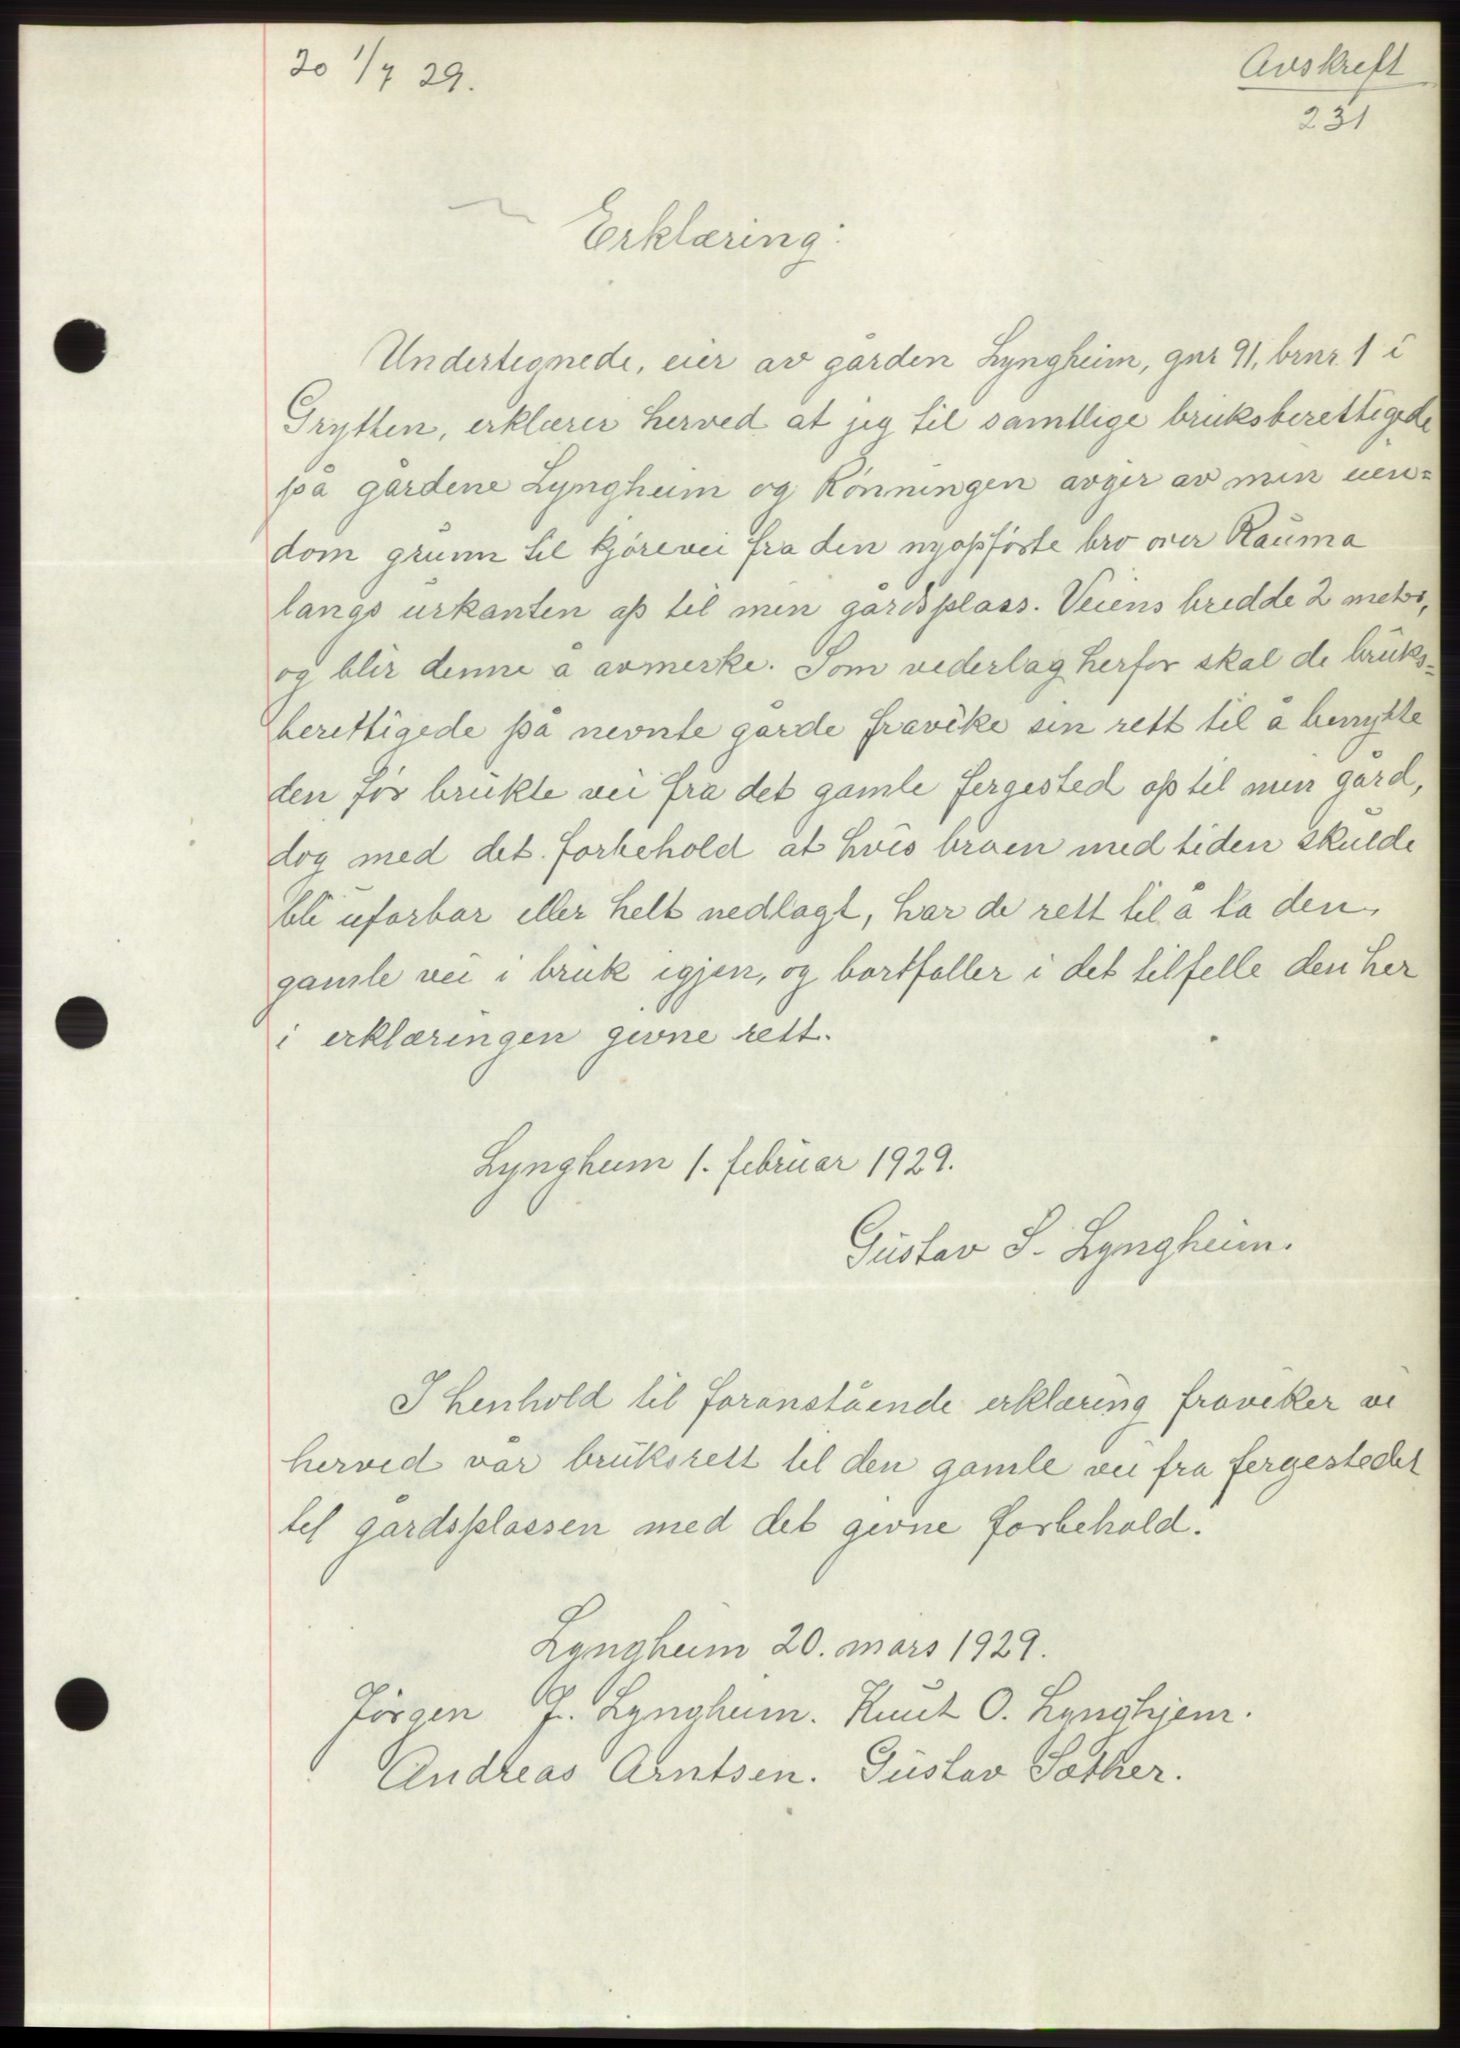 20 1/7 29.
Avskreft
231
Erklæring:
Undertegnede, eier av gården Lyngheim, gnr 91, brnr. 1 i
Grytten, erklærer herved at jeg til samtlige bruksberettigede
på gårdene Lyngheim og Rönningen avgir av min eien=
dom grunn til kjörevei fra den nyopförte bro over Rauma
langs urkanten op til min gårdsplass. Veiens bredde 2 meter,
og blir denne å avmerke. Som vederlag herfor skal de bruks=
berettigede på nevnte gårde fravike sin rett til å benytte
den för brukte vei fra det gamle fergested op til min gård,
dog med det forbehold at hvis broen med tiden skulde
bli ufarbar eller helt nedlagt, har de rett til å ta den
gamle vei i bruk igjen, og bortfaller i det tilfelle den her
i erklæringen givne rett.
Lyngheim 1. februar 1929.
Gustav S. Lyngheim.
I henhold til foranstående erklæring fraviker vi
herved vår bruksrett til den gamle vei fra fergestedet
til gårdsplassen med det givne forbehold.
Lyngheim 20. mars 1929.
Jörgen J. Lyngheim. Knut O. Lynghjem.
Andreas Arntsen. Gustav Sæther.